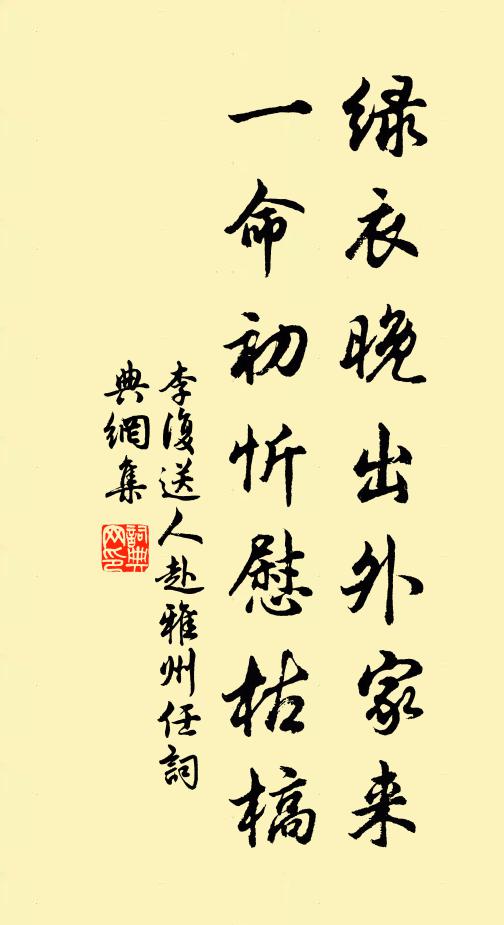 绿衣晚出外家来
一命初忻慰枯槁
李復送人赴雅州任詞
典網集
詞典
网印